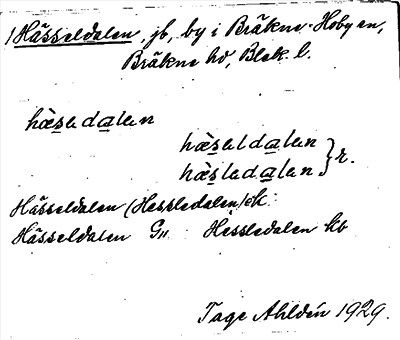 1 Hässeldalen, jb, by i Bräkne-Hoby sn,
Bräkne hd, Blek. l.
hæ̀sadalan
hæ̀saldalan
hæ̀sladalan } r.
Hässeldalen (Hessledalen) ek
Hässeldalen G11 Hessledalen kb
Tage Ahldén 1929.